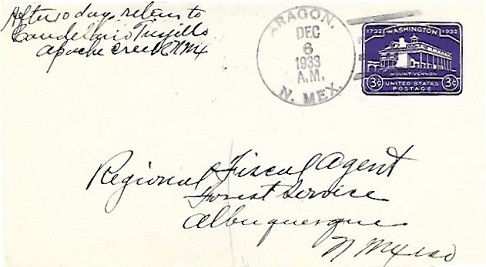 After 10 days return to
Candelario Trujillo
Apache Creek N Mx
ARAGON,
DEC
6
1933
A.M.
N. MEX.
1732 WASHINGTON 1932
3c MOUNT VERNON 3c
UNITED STATES
POSTAGE
Regional Fiscal Agent
Forest Service
Albuquerque
N Mexico